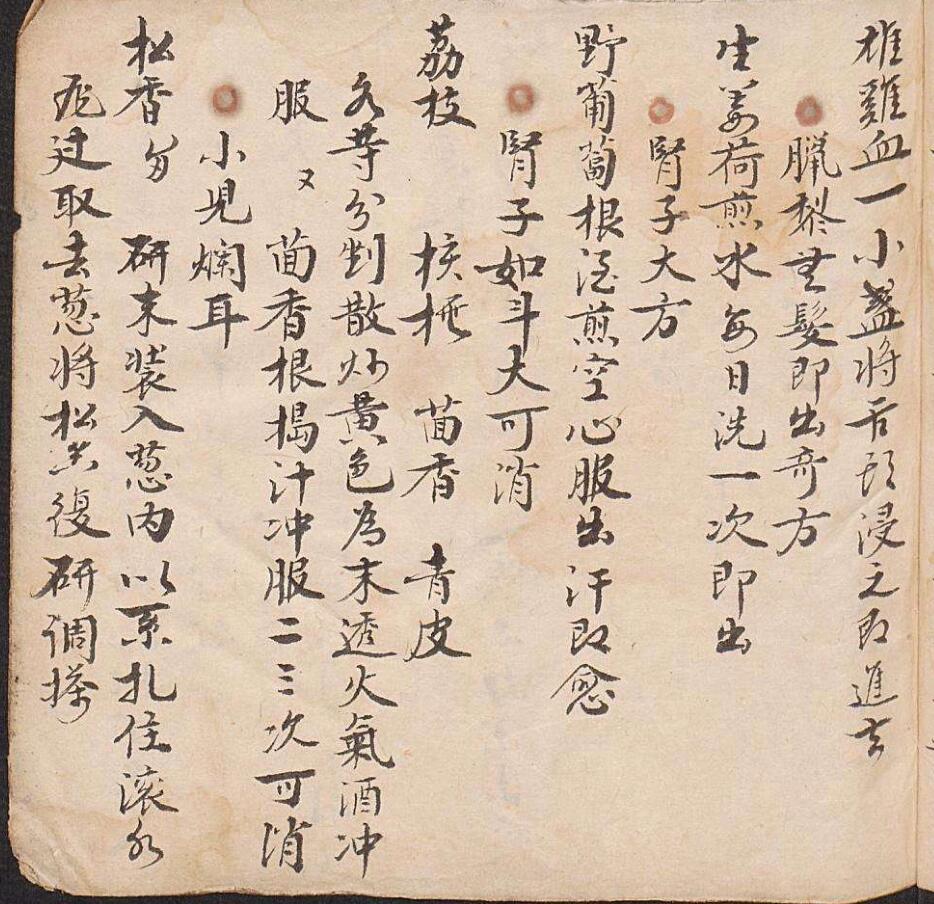 雄雞血一小盞將舌頭浸之即進去
臘梨無髮即出奇方
生姜荷煎水每日洗一次即出
腎子大方
野葡萄根酒煎空心服出汗即愈
腎子如斗大可消
荔枝核 茴香 青皮
各等分剉散炒黃色為末透火氣酒冲
服 又 茴香根搗汁冲服二三次可消
小児爛耳
松香 研末裝入葱内以系扎住滚水
炮过取去葱將松香復研調搽